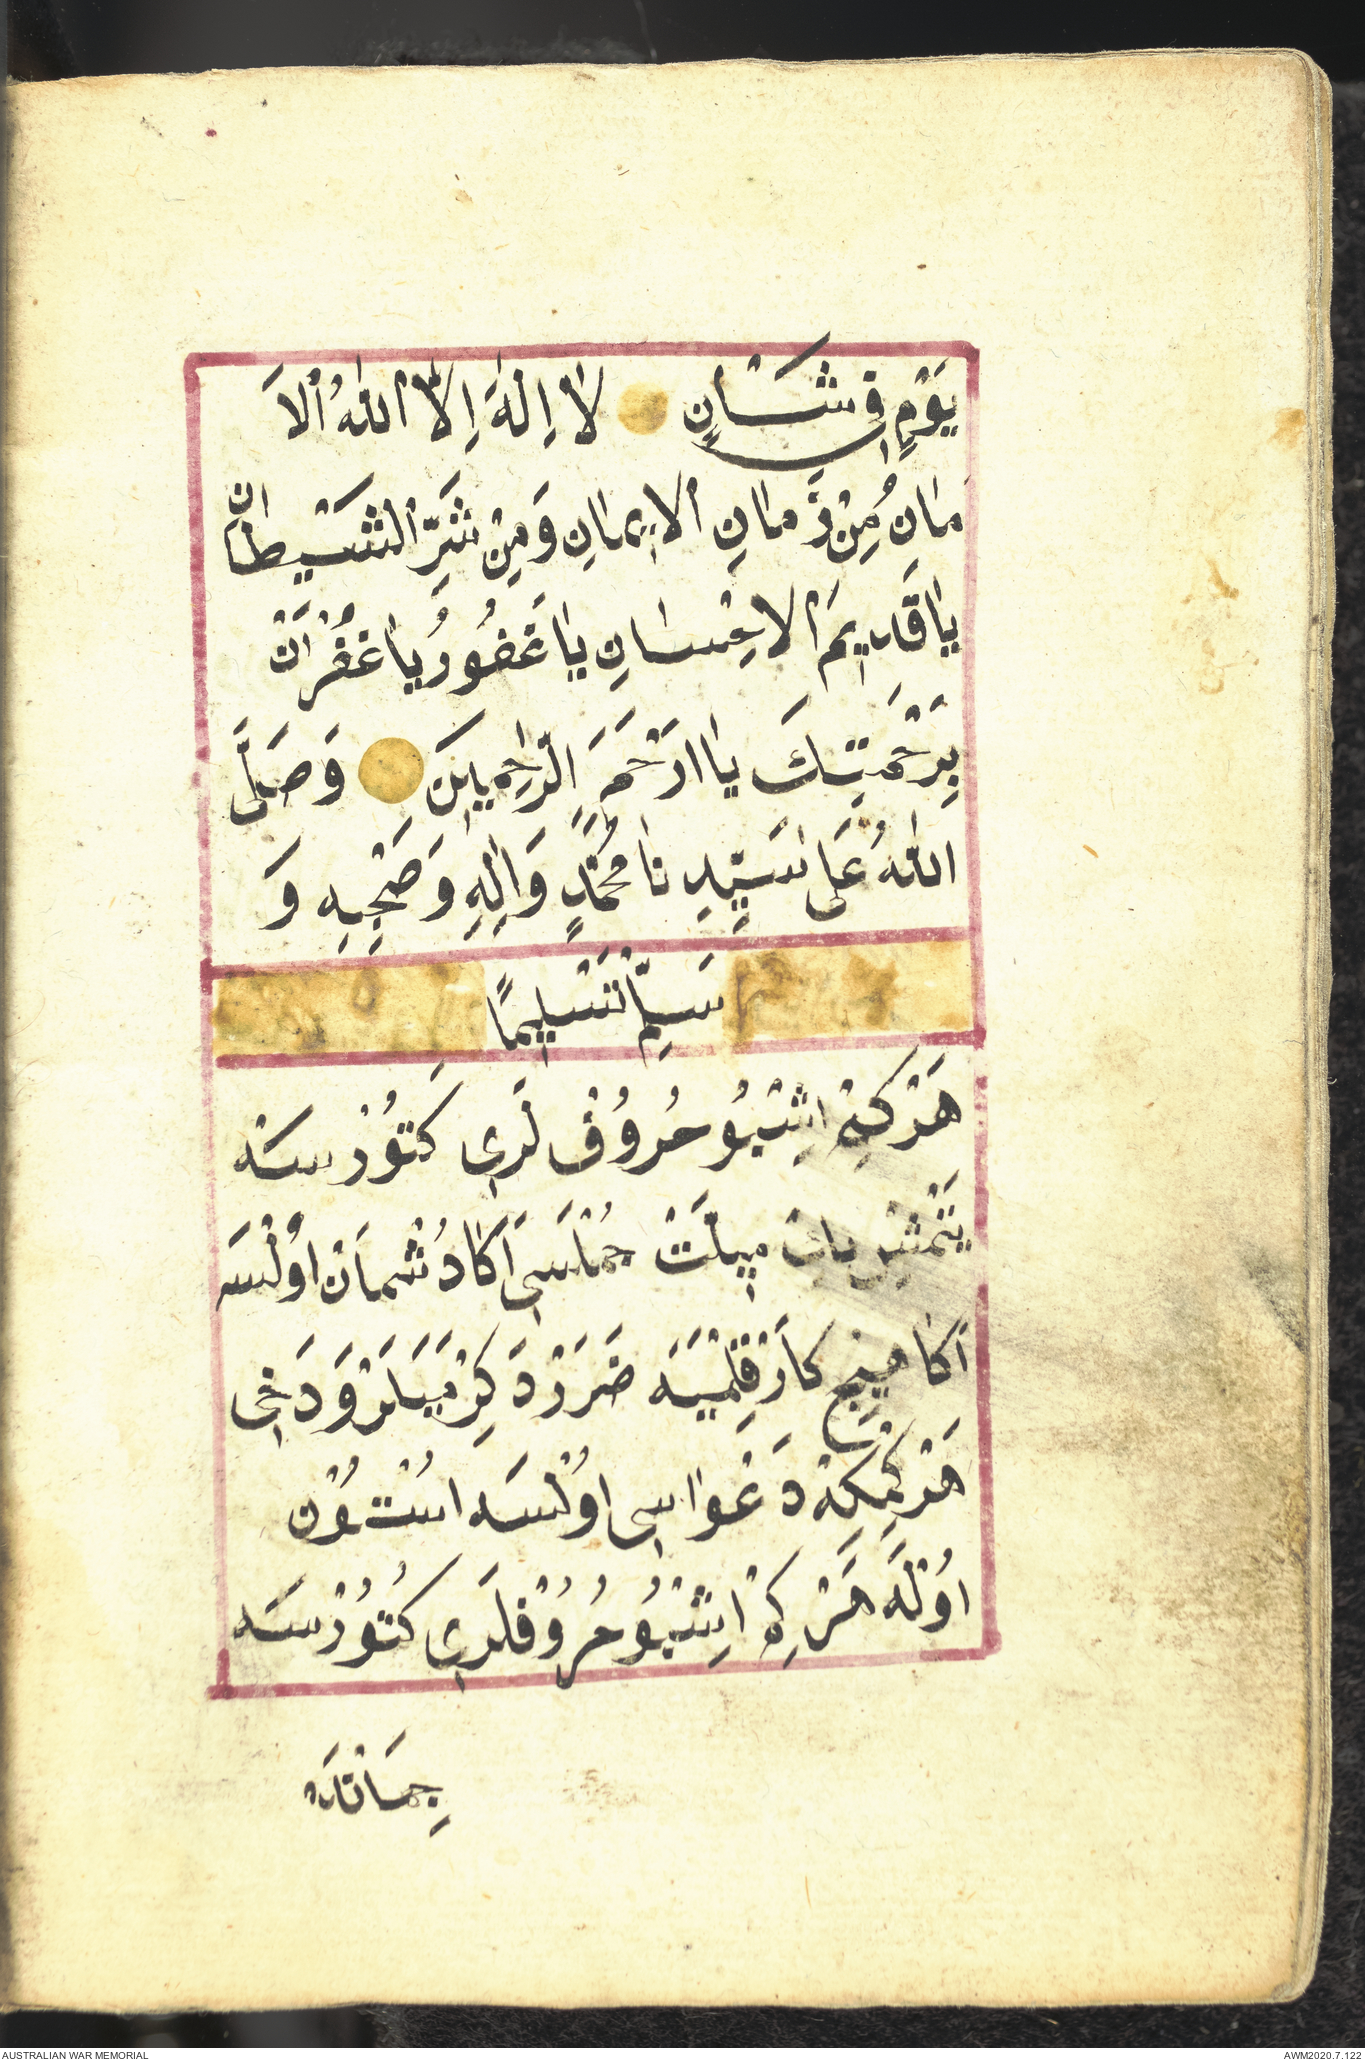 يَوْمٍ فِى شَانٍ لَا اِلٰهَ اِلَّا اللّٰهُ اَلْاَ
مٰانِ مِنْ زَمٰانِ الْاِيمٰانِ وَمِنْ شَرِّ الشَّيْطٰانِ
يٰا قَدِيمَ الْاِحْسٰانِ يٰا غَفُورُ يٰا غُفْرٰانْ
بِرَحْمَتِكَ يٰا اَرْحَمَ الرّٰاحِمِينَ وَصَلَّى
اللّٰهُ عَلٰى سَيِّدِنٰا مُحَمَّدٍ وَاٰلِهِ وَصَحْبِهِ وَ
سَلِّمْ تَسْلِيمًا
هَرْ كِمْ اِشْبُو حُرُوفْ لَرِى كَتُورْسَهْ
مِيلَّتْ جُمْلَسِى اَكَا دُشْمَانْ اُولْسَه
اَكَا هِيچْ كَارْ قِلْمَيَه ضَرَرْدَ كِرْمَيَلَرْ وَدَخِى
هَرْ كِمْكِهْ دَعْوَاسِى اُولْسَه اُسْتُونْ
اُولَه هَرْ كِمْ اِشْبُو حُرُوفْلَرِى كُتُورْسَه
جِمَانْدَه